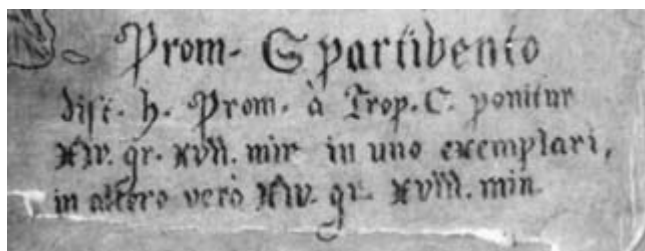 Prom. Spartibento
dist. h. Prom. à Trop. C. ponitur
XIV. gr. XVII. min in uno exemplari,
in altero verò XIV. gr. XVIII. min.